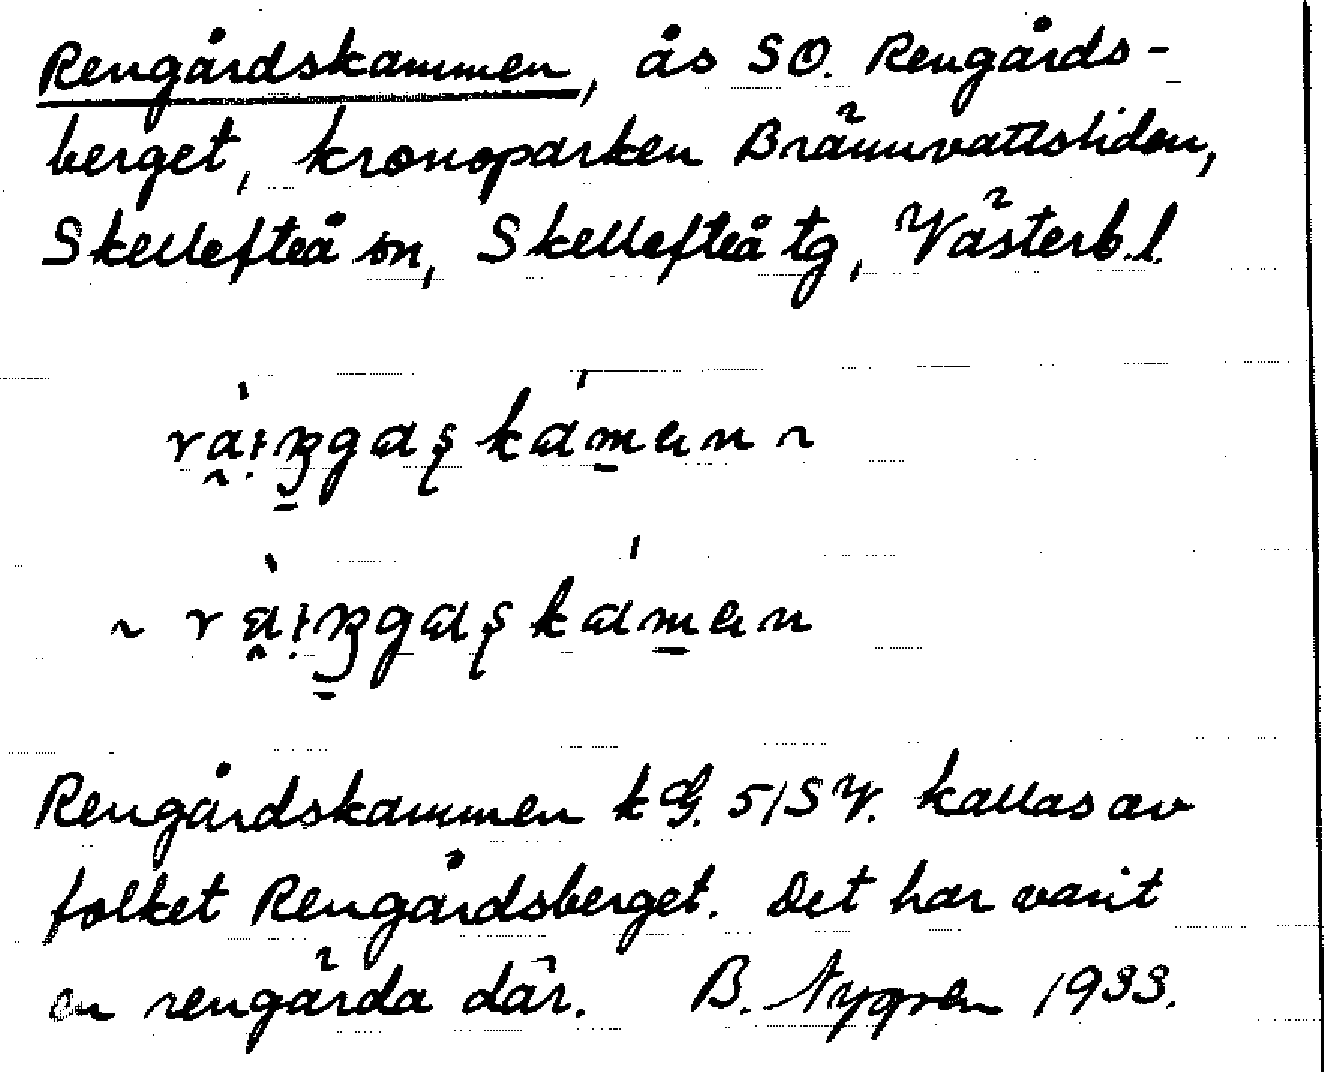 Rengårdskammen, ås SO. Rengårds-
berget, kronoparken Brännvattsliden,
Skellefteå sn, Skellefteå tg, Västerb.l.
Rengårdskammen kG. 51SV. kallas av
folket Rengårdsberget. Det har varit
en rengärda där. B. Nygren 1933.